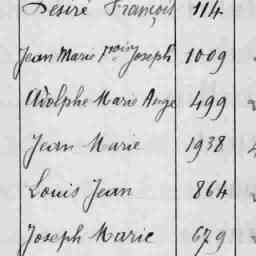 Désiré François 114
Jean Marie Joseph 1009
Adolphe Marie Ange 499
Jean Marie 1938
Louis Jean 864
Joseph Marie 679